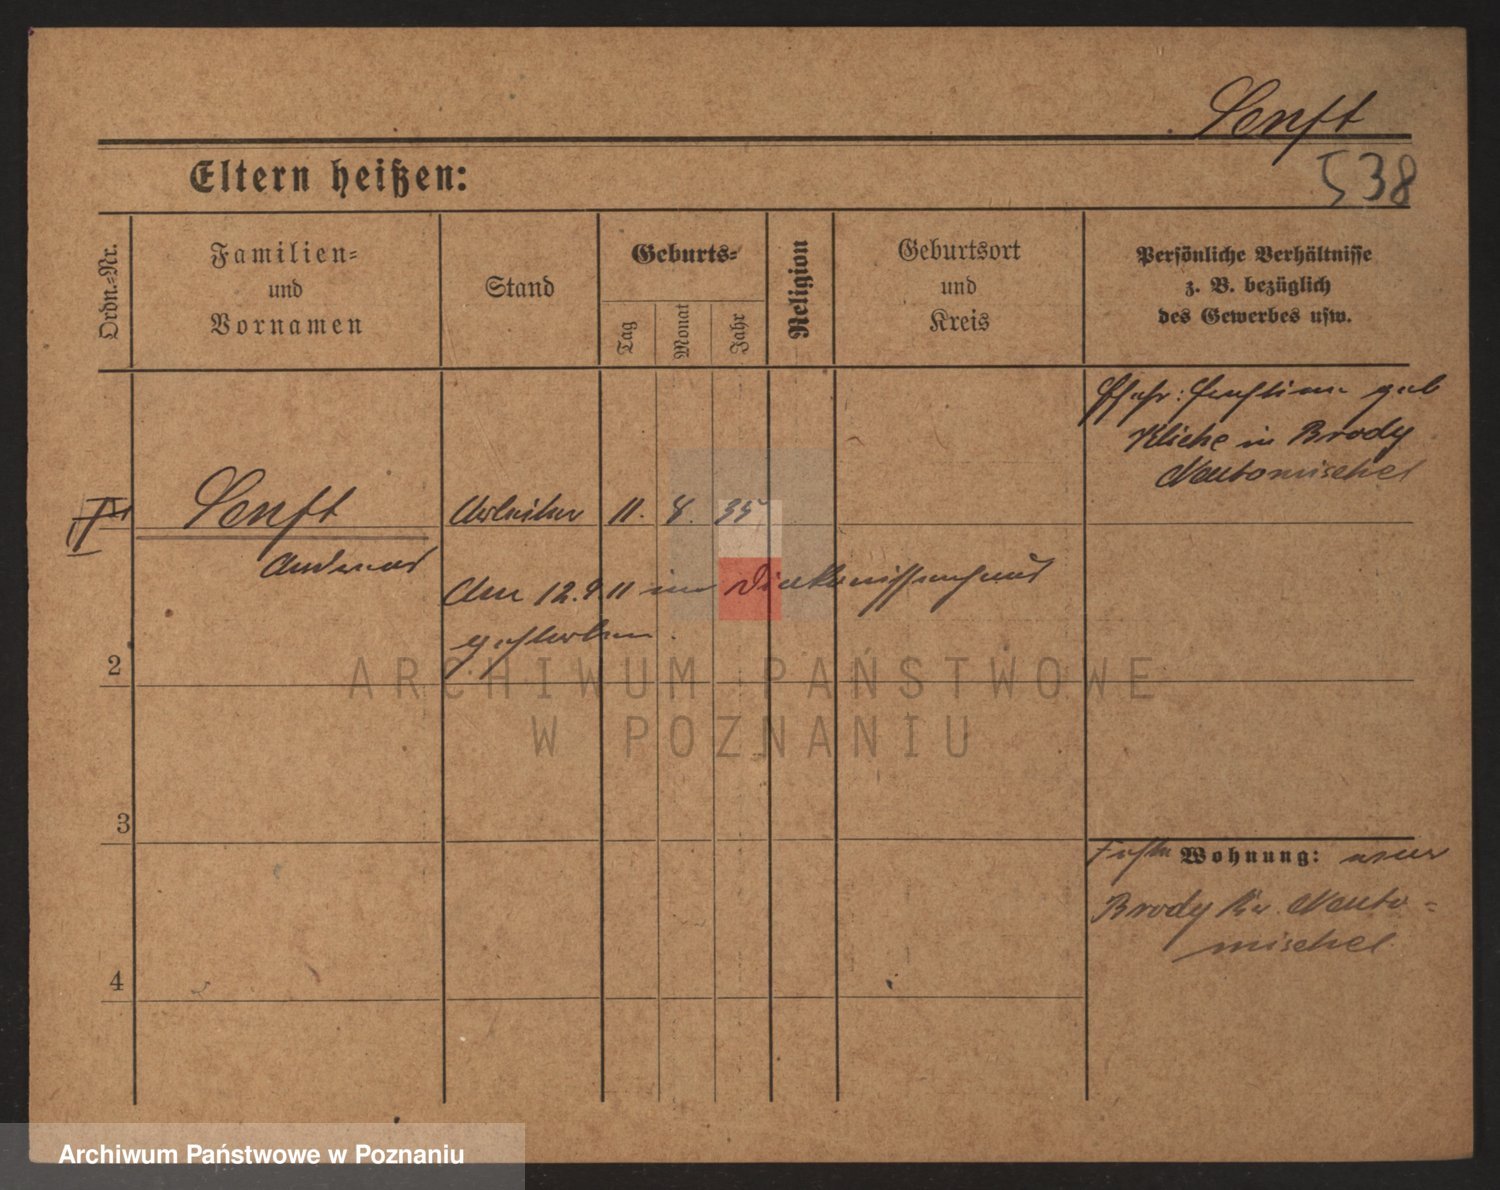 Senft
538
Eltern heißen:
Ordn.-Nr.
Familien-
und
Vornamen
Stand
Geburts-
Tag
Monat
Jahr
Religion
Geburtsort
und
Kreis
Persönliche Verhältnisse
z. B. bezüglich
des Gewerbes usw.
geb
Kliche in Brody
Neutomischel
Senft
Arbeiter
11. 8. 35
Andreas
Am 12.9 11 im Diakonissenhaus
gestorben.
2
3
4
Wohnung:
Brody Kr. Neuto-
mischel
ARCHIWUM PAŃSTWOWE
W POZNANIU
Archiwum Państwowe w Poznaniu